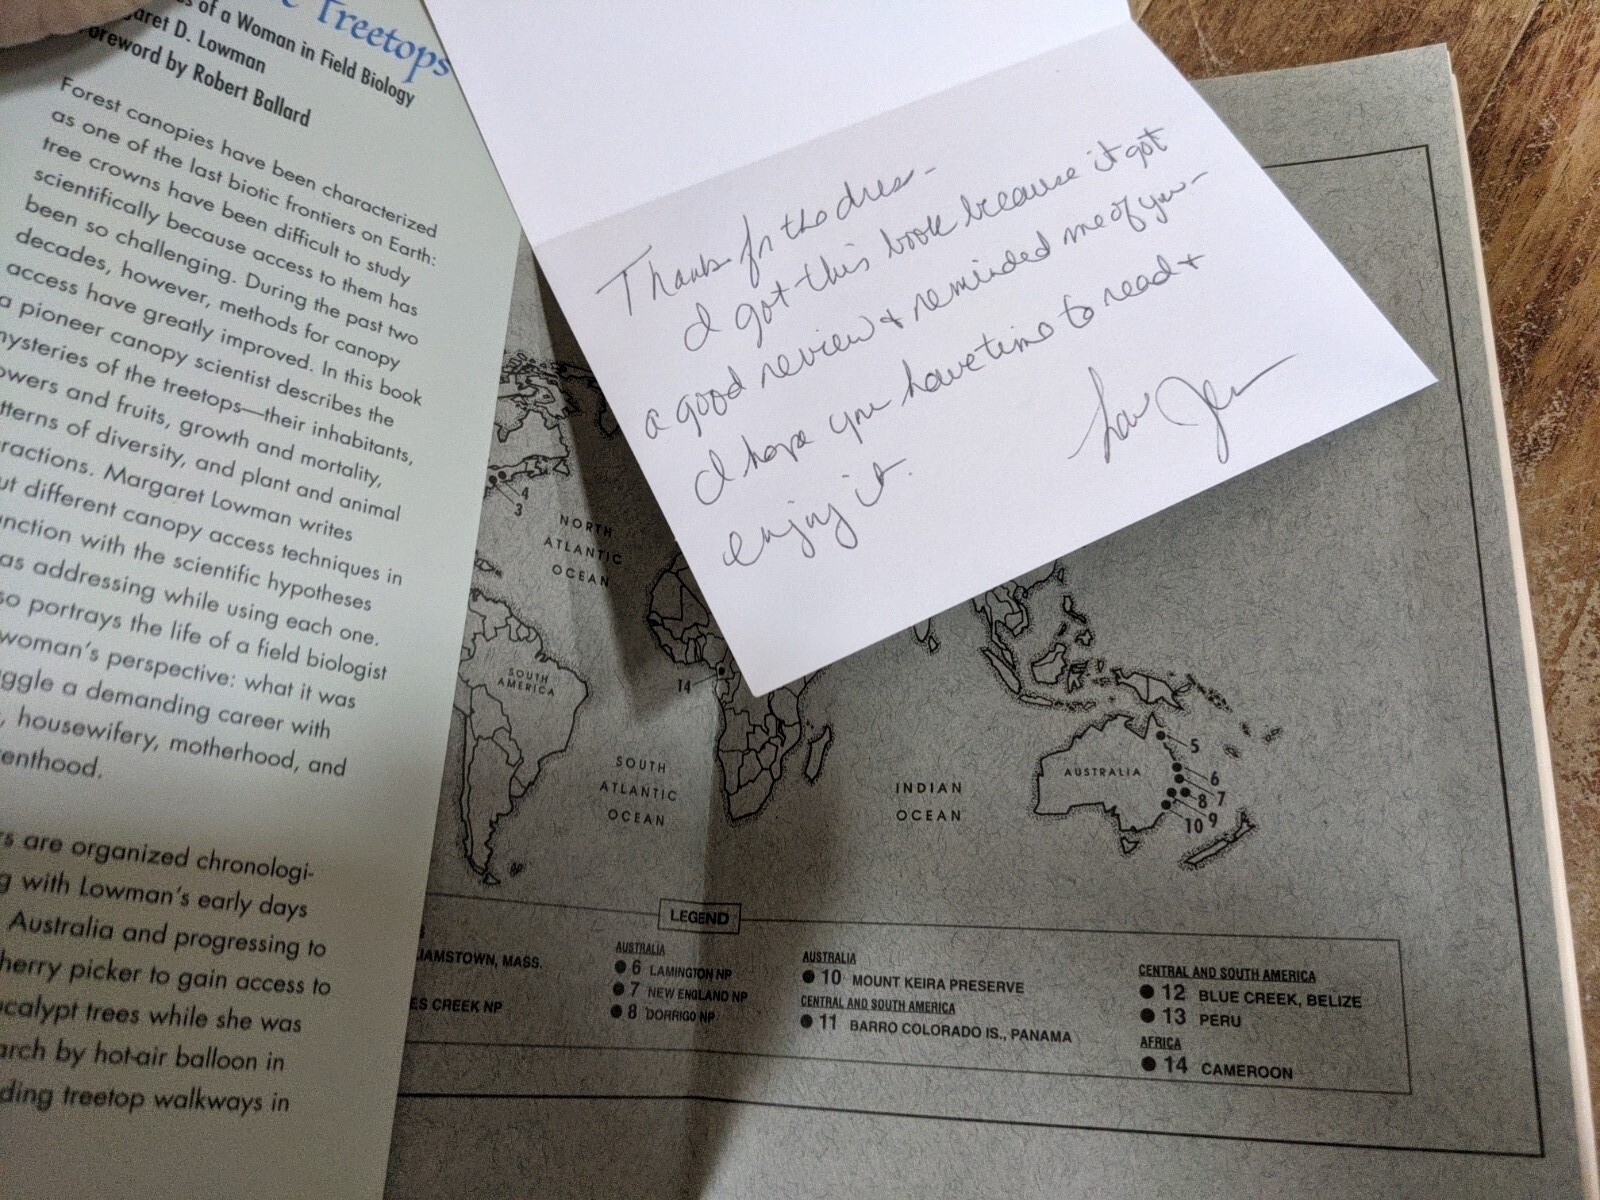 Treetops
of a Woman in Field Biology
Margaret D. Lowman
Foreword by Robert Ballard
Forest canopies have been characterized
as one of the last biotic frontiers on Earth:
tree crowns have been difficult to study
scientifically because access to them has
been so challenging. During the past two
decades, however, methods for canopy
access have greatly improved. In this book
a pioneer canopy scientist describes the
mysteries of the treetops—their inhabitants,
owers and fruits, growth and mortality,
tterns of diversity, and plant and animal
ractions. Margaret Lowman writes
ut different canopy access techniques in
nction with the scientific hypotheses
as addressing while using each one.
so portrays the life of a field biologist
woman's perspective: what it was
ggle a demanding career with
, housewifery, motherhood, and
enthood.
rs are organized chronologi-
g with Lowman's early days
Australia and progressing to
herry picker to gain access to
calypt trees while she was
arch by hot-air balloon in
ding treetop walkways in
Thanks for the dress -
I got this book because it got
a good review & reminded me of you -
I hope you have time to read &
enjoy it.
Love Jen
4
3
NORTH
ATLANTIC
OCEAN
SOUTH
AMERICA
14
SOUTH
ATLANTIC
OCEAN
INDIAN
OCEAN
AUSTRALIA
5
6
7
8
9
10
LEGEND
IAMSTOWN, MASS.
ES CREEK NP
AUSTRALIA
6 LAMINGTON NP
7 NEW ENGLAND NP
8 DORRIGO NP
AUSTRALIA
10 MOUNT KEIRA PRESERVE
CENTRAL AND SOUTH AMERICA
11 BARRO COLORADO IS., PANAMA
CENTRAL AND SOUTH AMERICA
12 BLUE CREEK, BELIZE
13 PERU
AFRICA
14 CAMEROON